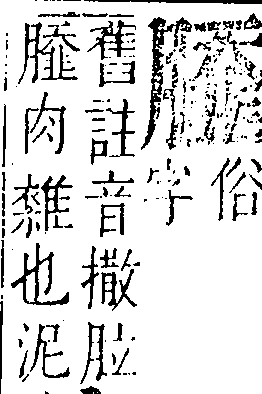 俗
字
舊註音撒
肉雜也泥